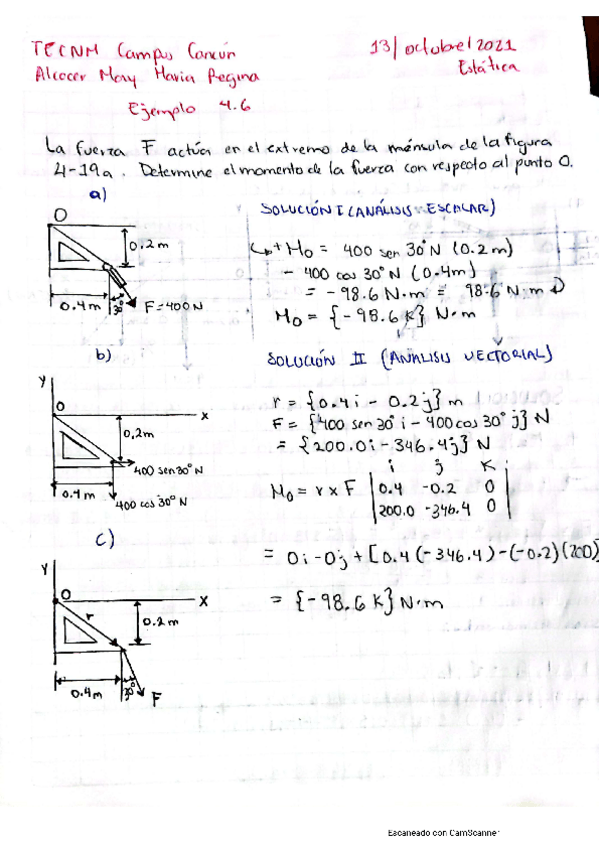 TECNM Campus Cancún
13/octubre/2021
Alcocer May Maria Regina
Estática
Ejemplo 4.6
La fuerza F actúa en el extremo de la ménsula de la figura
4-19a. Determine el momento de la fuerza con respecto al punto O.
a)
SOLUCIÓN I (ANÁLISIS ESCALAR)
O
0.2 m
0.4 m
30°
F=400N
↳+ Mo = 400 sen 30° N (0.2 m)
- 400 cos 30° N (0.4m)
= -98.6 N·m = 98.6 N·m ↻
Mo = {-98.6 K} N·m
b)
SOLUCIÓN II (ANALISIS VECTORIAL)
Y
O
X
0,2m
0.4 m
400 sen30° N
400 cos 30° N
r = {0.4i - 0.2j} m
F = {400 sen 30° i - 400 cos 30° j} N
= {200.0i - 346.4j} N
i j K
Mo = r x F | 0.4 -0.2 0 |
200.0 -346.4 0
= 0i - 0j + [0.4(-346.4) - (-0.2)(200)]
= {-98.6 K} N·m
c)
Y
O
X
r
0.2 m
0.4m
30°
F
Escaneado con CamScanner